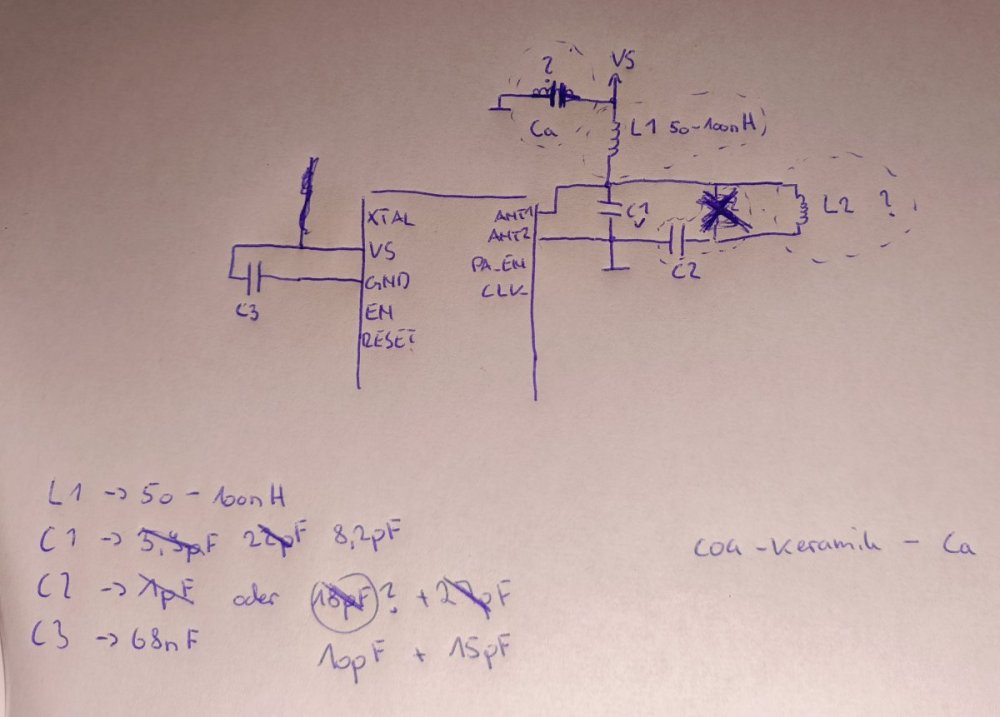 ?
VS
Ca
L1 50-100nH
XTAL
ANT1
C1
L2 ?
VS
ANT2
GND
PA_EN
C2
C3
EN
CLK
RESET
L1 -> 50 - 100nH
C1 -> 3,9pF 22pF 8,2pF
C2 -> 1pF oder 18pF ? + 27pF
C3 -> 68nF
10pF + 15pF
COG - Keramik - Ca